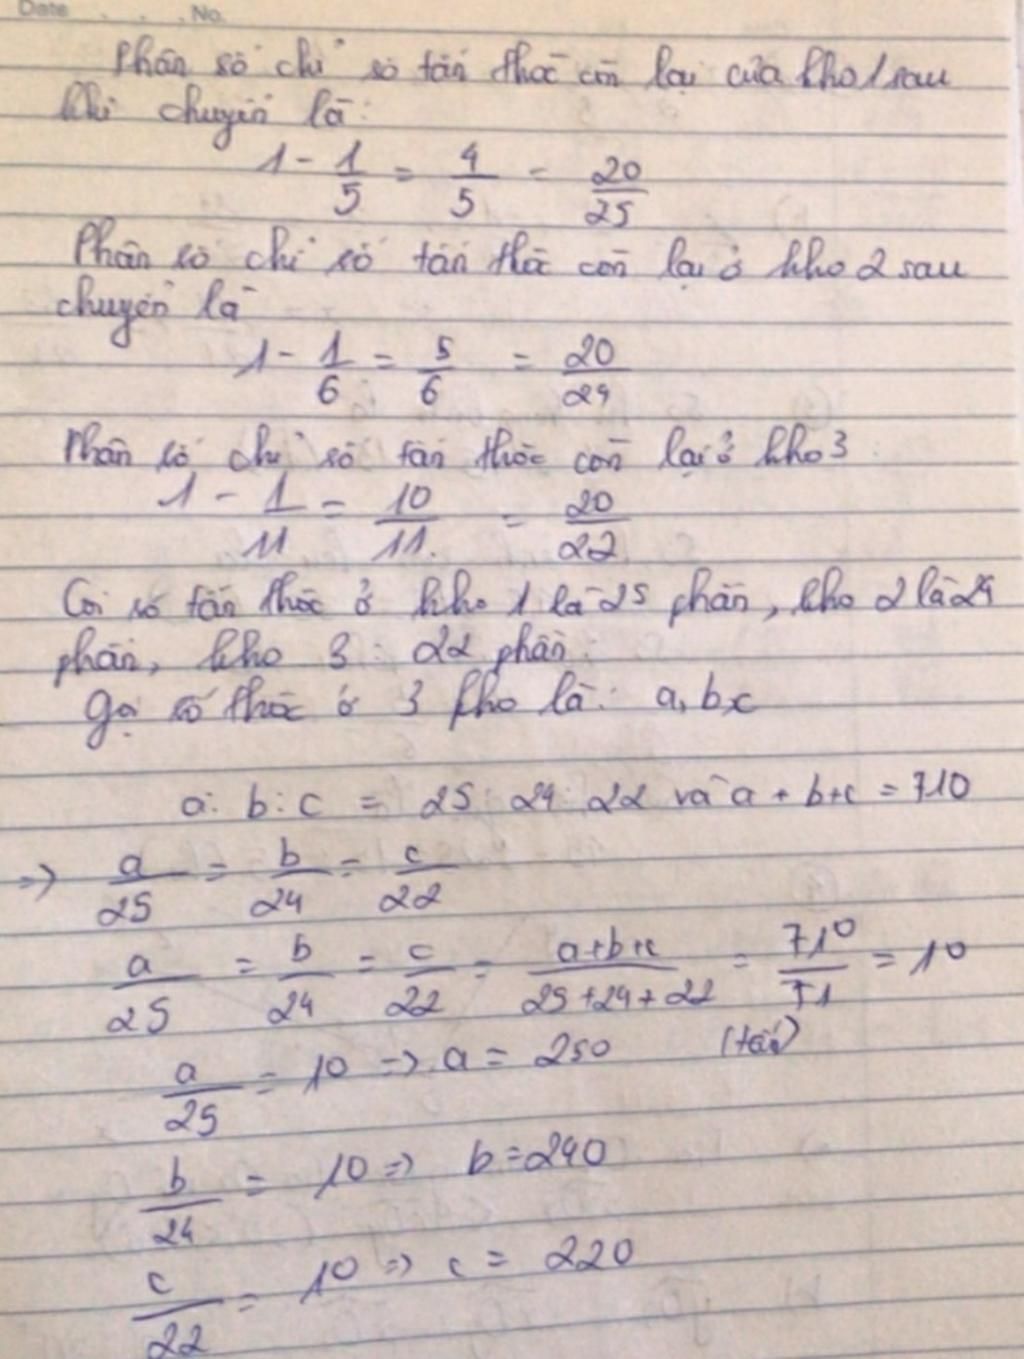 Date . . . No.
Phân số chỉ số tấn thóc còn lại của kho 1 sau
khi chuyển là:
1 - 1/5 = 4/5 = 20/25
Phân số chỉ số tấn thóc còn lại ở kho 2 sau
chuyển là
1 - 1/6 = 5/6 = 20/24
Phân số chỉ số tấn thóc còn lại ở kho 3:
1 - 1/11 = 10/11 = 20/22
Coi số tấn thóc ở kho 1 là 25 phần, kho 2 là 24
phần, kho 3 : 22 phần.
Gọi số thóc ở 3 kho là: a, b, c
a : b : c = 25 : 24 : 22 và a + b + c = 710
=> a/25 = b/24 = c/22
a/25 = b/24 = c/22 = a+b+c/25+24+22 = 710/71 = 10
(tấn)
a/25 = 10 => a = 250
b/24 = 10 => b = 240
c/22 = 10 => c = 220